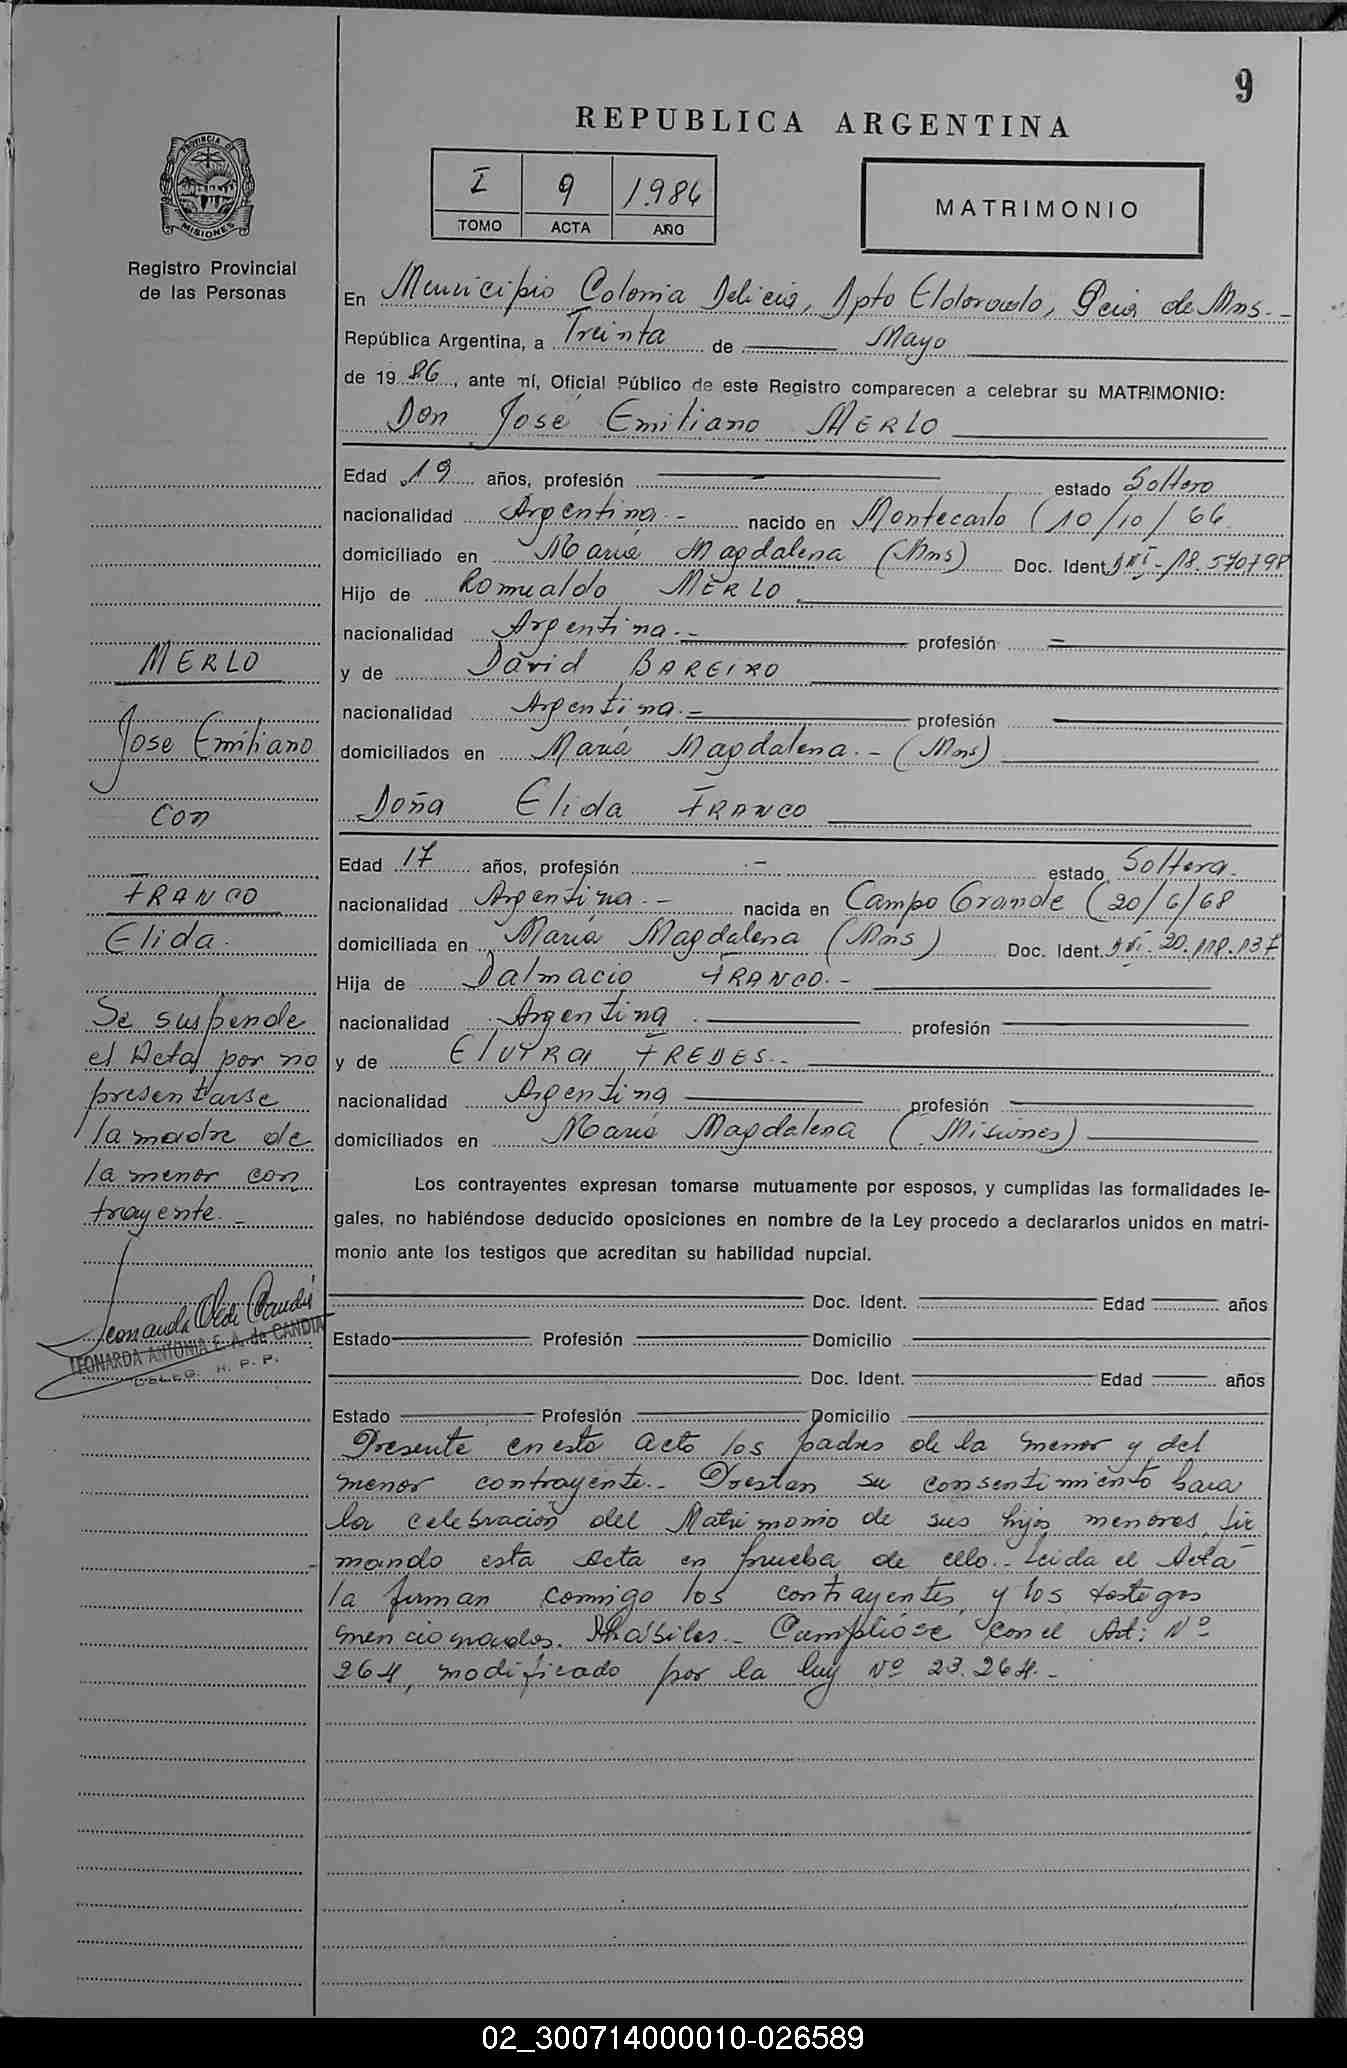 9
REPUBLICA ARGENTINA
I 9 1.986
TOMO ACTA AÑO
MATRIMONIO
PROVINCIA DE
MISIONES
Registro Provincial
de las Personas
En Municipio Colonia Delicia, Dpto Eldorado, Pcia de Mns. -
República Argentina, a Treinta de Mayo
de 19 86, ante mí, Oficial Público de este Registro comparecen a celebrar su MATRIMONIO:
Don José Emiliano MERLO
Edad 19 años, profesión estado Soltero
nacionalidad Argentina - nacido en Montecarlo (10/10/66
domiciliado en María Magdalena (Mns) Doc. Ident. DNI - 18.570798
Hijo de Romualdo MERLO
nacionalidad Argentina.- profesión
y de David BAREIRO
nacionalidad Argentina.- profesión
domiciliados en María Magdalena. - (Mns)
Doña Elida FRANCO
Edad 17 años, profesión - estado Soltera.
nacionalidad Argentina. - nacida en Campo Grande (20/6/68
domiciliada en María Magdalena (Mns) Doc. Ident. DNI. 20.118.137
Hija de Dalmacio FRANCO. -
nacionalidad Argentina profesión
y de ElVIRA FREDES.-
nacionalidad Argentina profesión
domiciliados en María Magdalena (Misiones)
Los contrayentes expresan tomarse mutuamente por esposos, y cumplidas las formalidades le-
gales, no habiéndose deducido oposiciones en nombre de la Ley procedo a declararlos unidos en matri-
monio ante los testigos que acreditan su habilidad nupcial.
Doc. Ident. Edad años
Estado Profesión Domicilio
Doc. Ident. Edad años
Estado Profesión Domicilio
Presente en esto acto los padres de la menor y del
menor contrayente.- Prestan su consentimiento para
la celebración del Matrimonio de sus hijos menores, fir
mando esta acta en prueba de ello.- Leida el Acta
la firman conmigo los contrayentes, y los testigos
mencionados. Hábiles.- Cumplióse con el Art: Nº
264, modificado por la ley Nº 23.264.-
MERLO
Jose Emiliano
Con
FRANCO
Elida.
Se suspende
el Acta por no
presentarse
la madre de
la menor con
trayente. -
LEONARDA ANTONIA E. A. de CANDIA
DELEG. R. P. P.
02_300714000010-026589